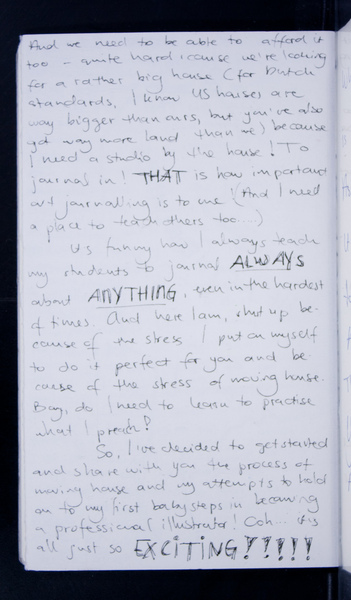 And we need to be able to afford it
too - quite hard 'cause we're looking
for a rather big house (for Dutch
standards, I know US houses are
way bigger than ours, but you've also
got way more land than we) because
I need a studio by the house! To
journal in! THAT is how important
art journalling is to me! (And I need
a place to teach others too...)
It's funny how I always teach
my students to journal ALWAYS
about ANYTHING, even in the hardest
of times. And here I am, shut up be-
cause of the stress I put on myself
to do it perfect for you and be-
cause of the stress of moving house.
Boy, do I need to learn to practise
what I preach?
So, I've decided to get started
and share with you the process of
moving house and my attempts to hold
on to my first babysteps in becoming
a professional illustrator! Ooh... it's
all just so EXCITING!!!!!